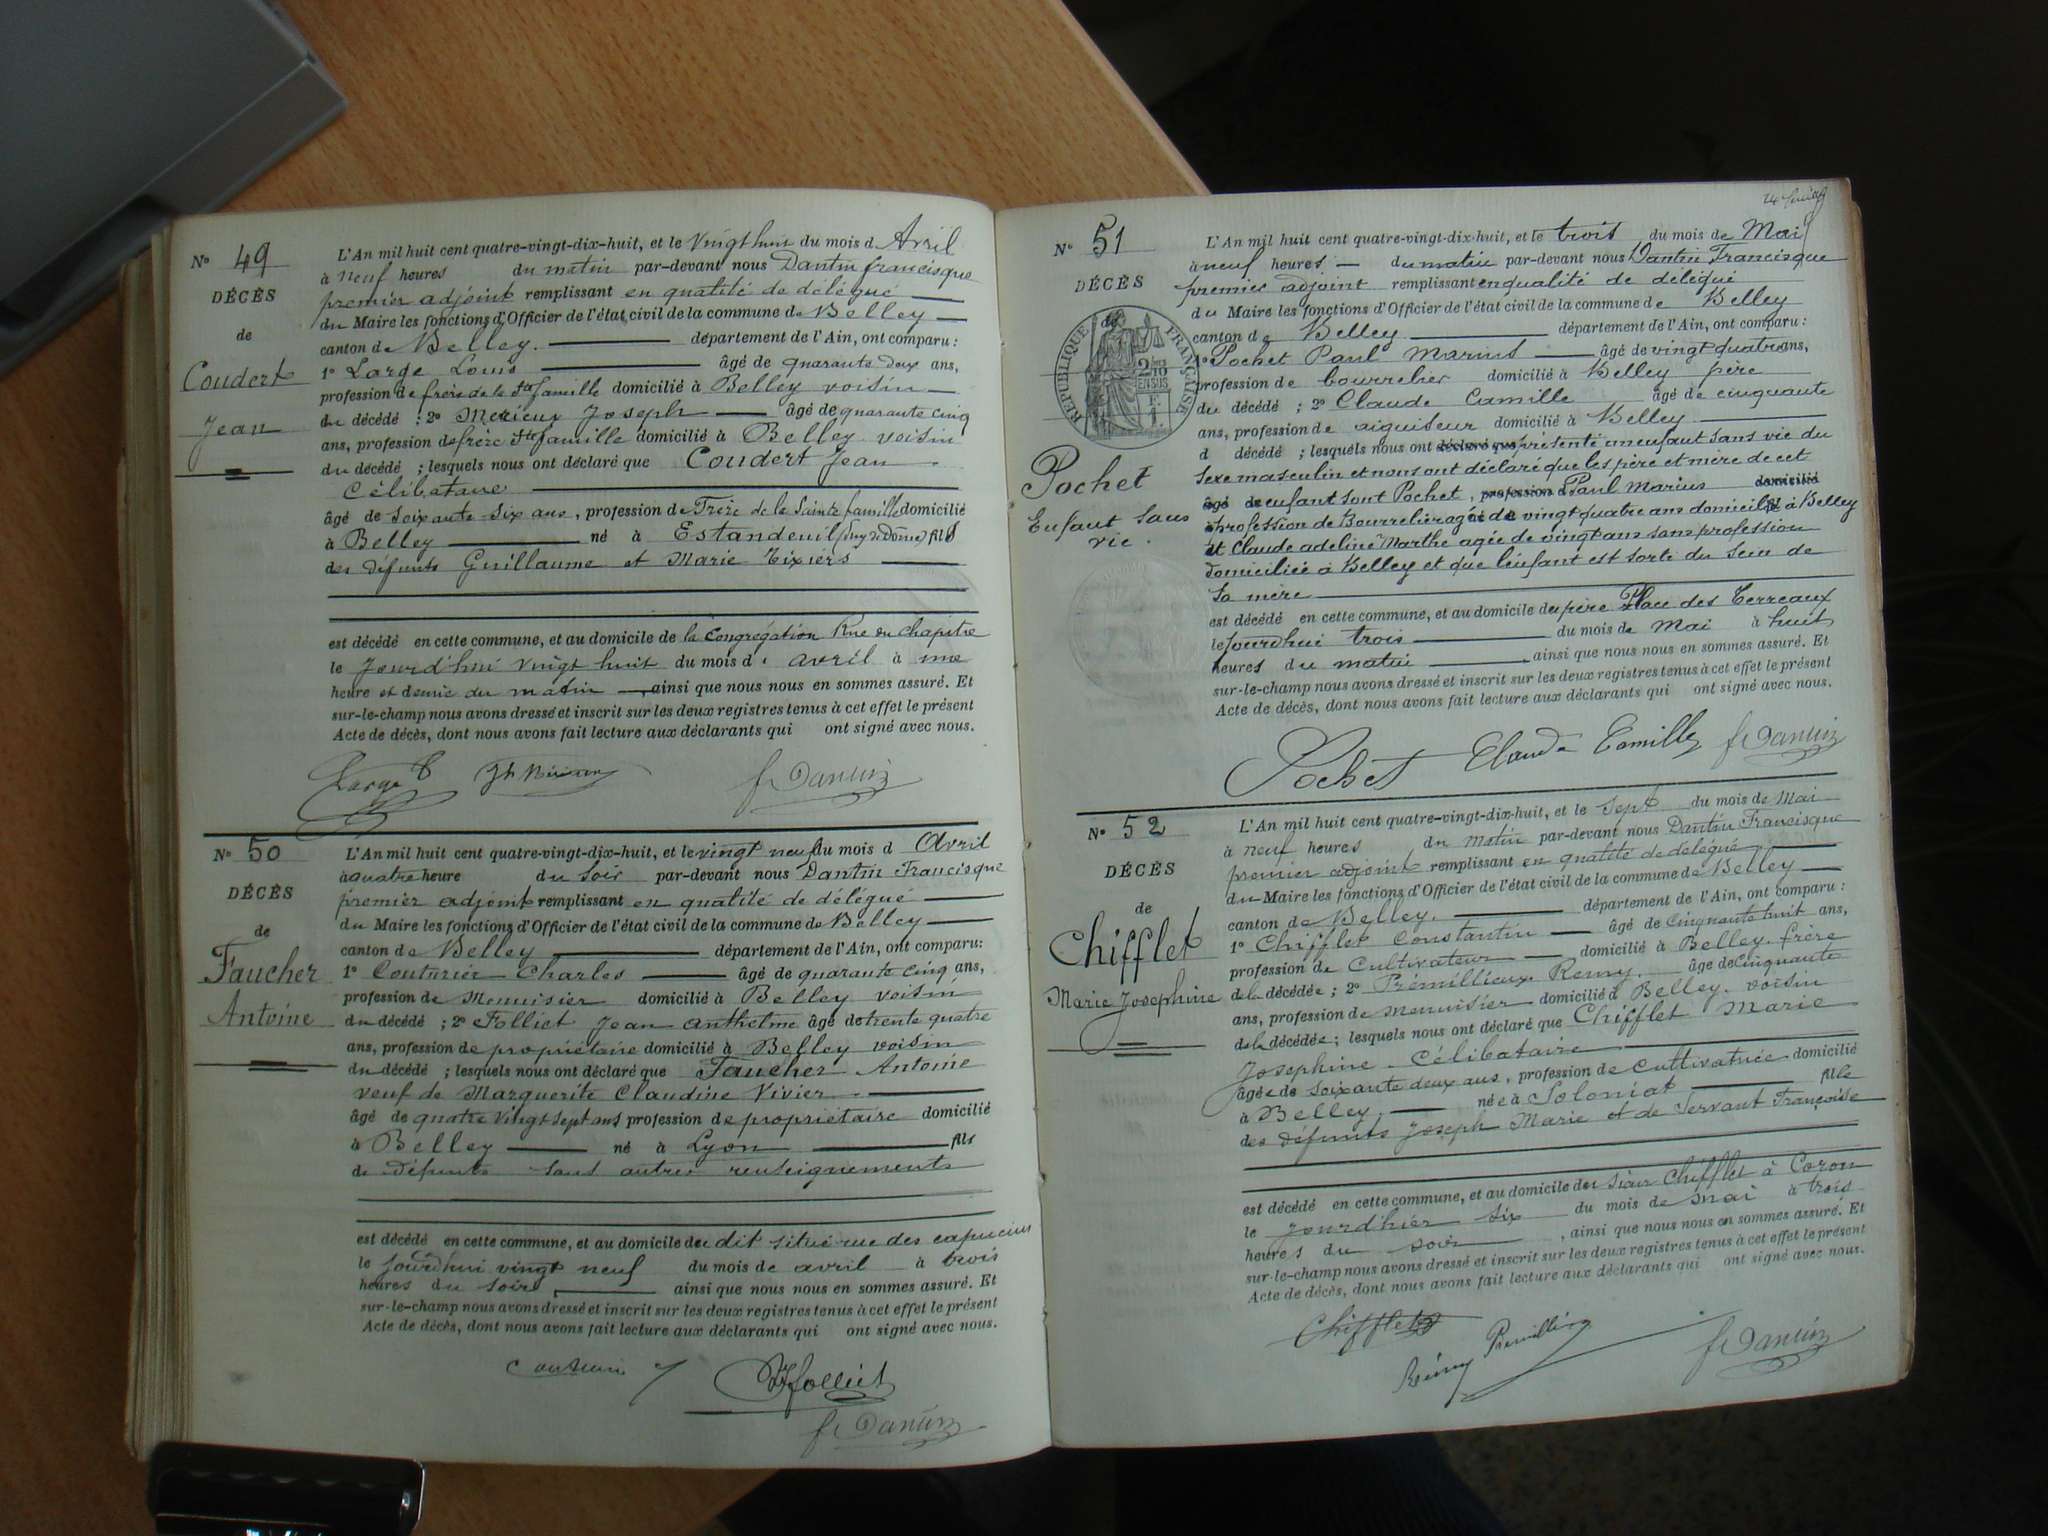 N° 49
DÉCÈS
de
Coudert
Jean
L'An mil huit cent quatre-vingt-dix-huit, et le vingt huit du mois d Avril
à neuf heures du matin par-devant nous Dantin francisque
premier adjoint remplissant en qualité de délégué
du Maire les fonctions d'Officier de l'état civil de la commune de Belley
canton de Belley. département de l'Ain, ont comparu :
1° Large Louis âgé de quarante deux ans,
profession de frère de la Ste famille domicilié à Belley voisin
du décédé ; 2° Joseph âgé de quarante cinq
ans, profession de frère Ste famille domicilié à Belley voisin
du décédé ; lesquels nous ont déclaré que Coudert Jean
Célibataire
âgé de soixante six ans, profession de Frère de la Sainte famille domicilié
à Belley né à Estandeuil (Puy de Dôme) fils
des défunts Guillaume et Marie Tixiers
est décédé en cette commune, et au domicile de la Congrégation Rue du Chapitre
le Jourd'hui vingt huit du mois d' avril à une
heure et demie du matin , ainsi que nous nous en sommes assuré. Et
sur-le-champ nous avons dressé et inscrit sur les deux registres tenus à cet effet le présent
Acte de décès, dont nous avons fait lecture aux déclarants qui ont signé avec nous.
Large f Dantin
N° 50
DÉCÈS
de
Faucher
Antoine
L'An mil huit cent quatre-vingt-dix-huit, et le vingt neuf du mois d Avril
à quatre heure du soir par-devant nous Dantin Francisque
premier adjoint remplissant en qualité de délégué
du Maire les fonctions d'Officier de l'état civil de la commune de Belley
canton de Belley département de l'Ain, ont comparu :
1° Couturier Charles âgé de quarante cinq ans,
profession de Menuisier domicilié à Belley voisin
du décédé ; 2° Folliet Jean anthelme âgé de trente quatre
ans, profession de propriétaire domicilié à Belley voisin
du décédé ; lesquels nous ont déclaré que Faucher Antoine
veuf de Marguerite Claudine Vivier
âgé de quatre vingt sept ans profession de propriétaire domicilié
à Belley né à Lyon fils
de défunts sans autres renseignements
est décédé en cette commune, et au domicile du dit situé rue des capucins
le jourdhui vingt neuf du mois de avril à trois
heures du soir , ainsi que nous nous en sommes assuré. Et
sur-le-champ nous avons dressé et inscrit sur les deux registres tenus à cet effet le présent
Acte de décès, dont nous avons fait lecture aux déclarants qui ont signé avec nous.
Folliet
f Dantin
N° 51
DÉCÈS
de
RÉPUBLIQUE FRANÇAISE
Pochet
Enfant sans
vie.
L'An mil huit cent quatre-vingt-dix-huit, et le trois du mois de Mai
à neuf heures du matin par-devant nous Dantin Francisque
premier adjoint remplissant en qualité de délégué
du Maire les fonctions d'Officier de l'état civil de la commune de Belley
canton de Belley département de l'Ain, ont comparu :
1° Pochet Paul Marius âgé de vingt quatre ans,
profession de bourrelier domicilié à Belley père
du décédé ; 2° Claude Camille âgé de cinquante
ans, profession de aiguiseur domicilié à Belley
d décédé ; lesquels nous ont déclaré que présenté un enfant sans vie du
sexe masculin et nous ont déclaré que les père et mère de cet
âgé de enfant sont Pochet, profession d Paul Marius domicilié
profession de Bourrelier agé de vingt quatre ans domicilié à Belley
et Claude adeline Marthe agée de vingt ans sans profession
domiciliée à Belley et que l'enfant est sorti du sein de
sa mère
est décédé en cette commune, et au domicile du père Place des Terreaux
le jourdhui trois du mois de Mai à huit
heures du matin , ainsi que nous nous en sommes assuré. Et
sur-le-champ nous avons dressé et inscrit sur les deux registres tenus à cet effet le présent
Acte de décès, dont nous avons fait lecture aux déclarants qui ont signé avec nous.
Pochet Claude Camille f Dantin
N° 52
DÉCÈS
de
Chifflet
Marie Josephine
L'An mil huit cent quatre-vingt-dix-huit, et le sept du mois de Mai
à neuf heures du Matin par-devant nous Dantin Francisque
premier adjoint remplissant en qualité de délégué
du Maire les fonctions d'Officier de l'état civil de la commune de Belley
canton de Belley. département de l'Ain, ont comparu :
1° Chifflet Constantin âgé de Cinquante huit ans,
profession de Cultivateur domicilié à Belley frère
de la décédée ; 2° Prémillieux Remy. âgé de Cinquante
ans, profession de menuisier domicilié à Belley. voisin
de la décédée ; lesquels nous ont déclaré que Chifflet Marie
Josephine Célibataire
âgée de soixante deux ans, profession de cultivatrice domicilié
à Belley. née à Soloniat fille
des défunts Joseph Marie et de Servant Françoise
est décédé en cette commune, et au domicile du sieur Chifflet à Coron
le jourd'hier six du mois de Mai à trois
heures du soir , ainsi que nous nous en sommes assuré. Et
sur-le-champ nous avons dressé et inscrit sur les deux registres tenus à cet effet le présent
Acte de décès, dont nous avons fait lecture aux déclarants qui ont signé avec nous.
Chifflet Rémy f Dantin